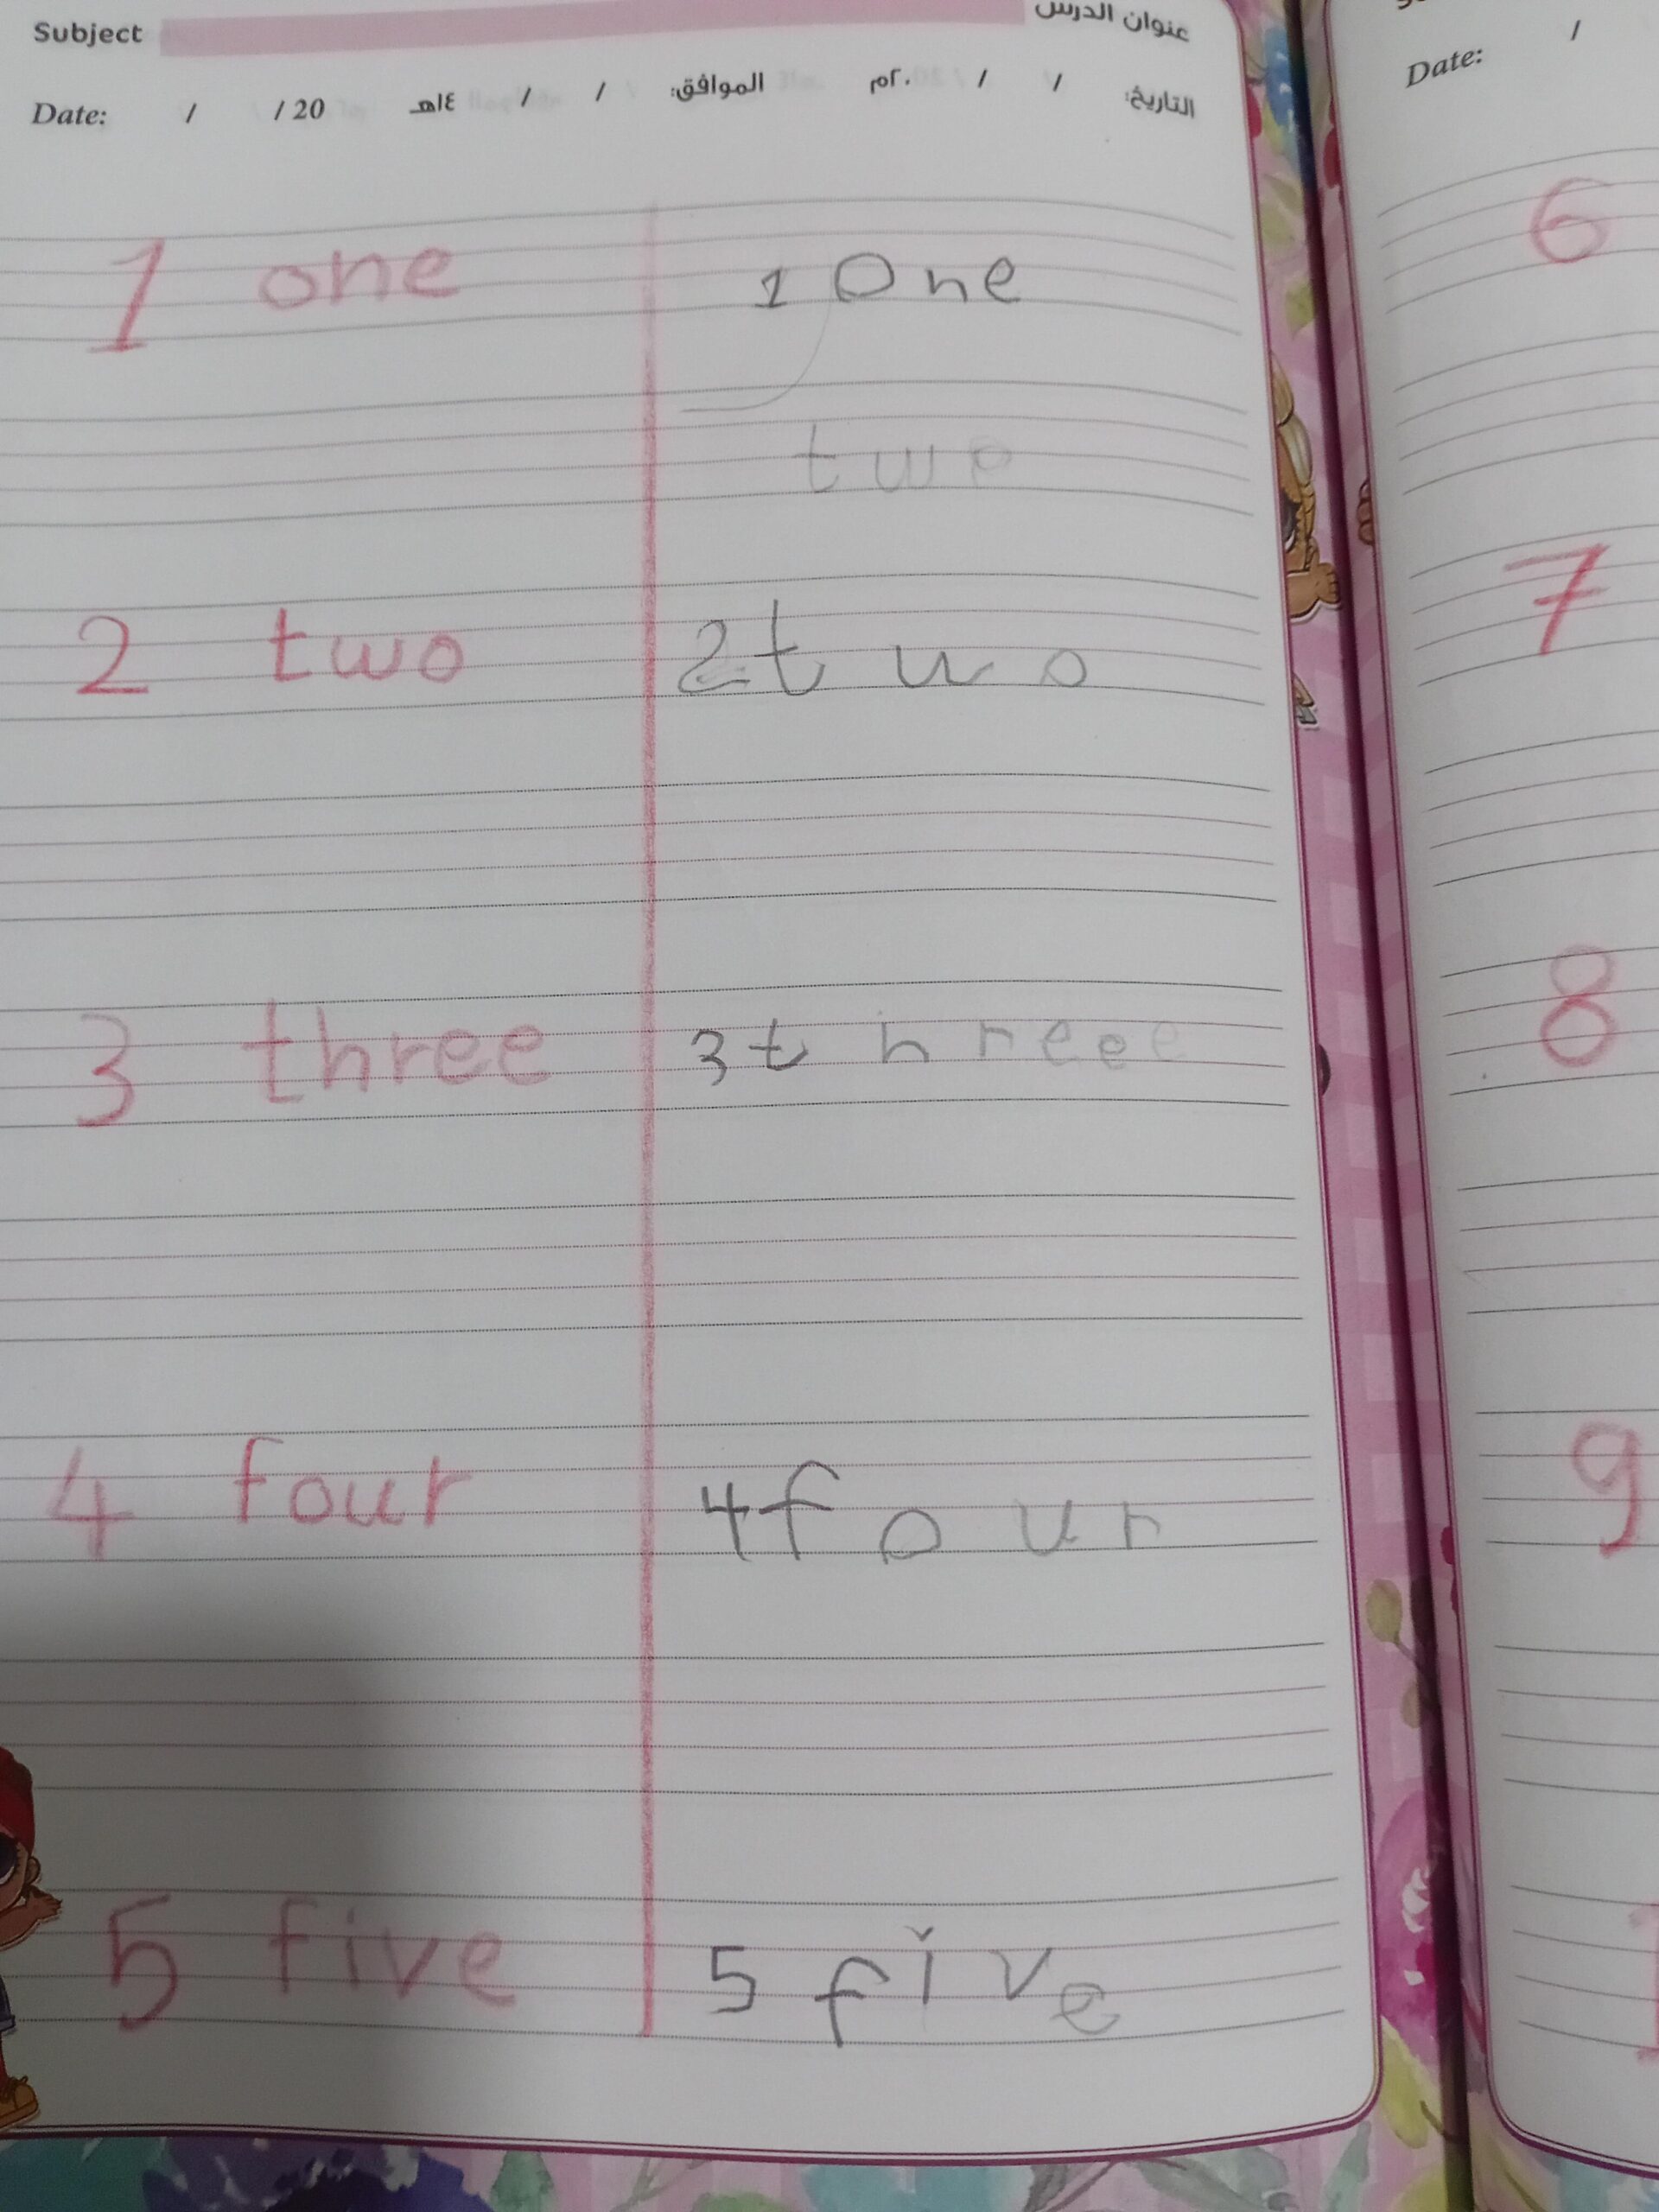 Subject عنوان الدرس
Date: / / 20 ١٤هـ / / الموافق: ٢٠م / / التاريخ:
1 one 1 One
two
2 two 2 two
3 three 3 threee
4 four 4 four
5 five 5 five
Date: /
6
7
8
9